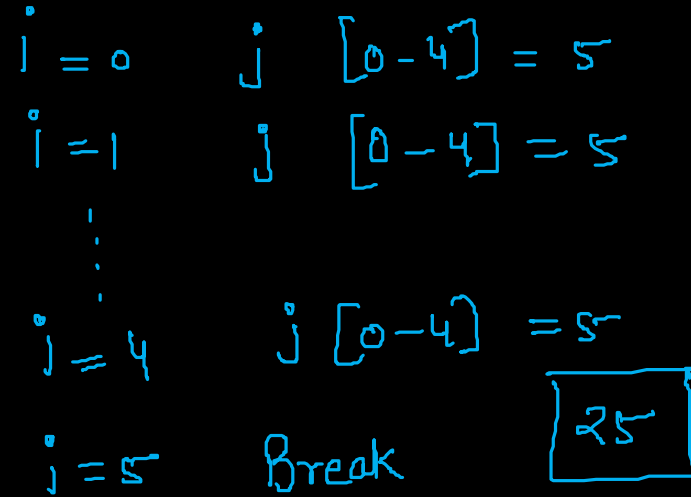 i = 0 j [0-4] = 5
i = 1 j [0-4] = 5
i = 4 j [0-4] = 5
25
i = 5 Break